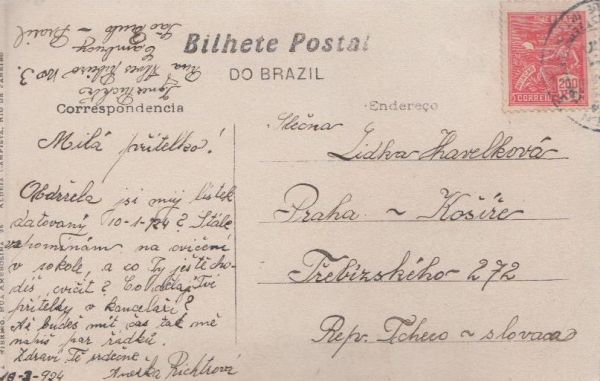 Bilhete Postal
DO BRAZIL
Correspondencia
Endereço
200
CORREIO
Rua Flores Ribeiro No 3.
Cambucy
São Paulo - Brasil
Milá přítelko!
Obdržela jsi můj lístek
datovaný 10-1-924? Stále
vzpomínám na cvičení
v sokole, a co Ty ještě cho-
díš cvičit? Co dělají Tvé
přítelky v kanceláři?
Až budeš mít čas tak mě
napiš pár řádků.
Zdraví Tě srdečně
Richtrová
18-3-924
Slečna
Lidka Havelková
Praha - Košíře
Třebízského 272
Rep. Tcheco - slovaca
RIO DE JANEIRO